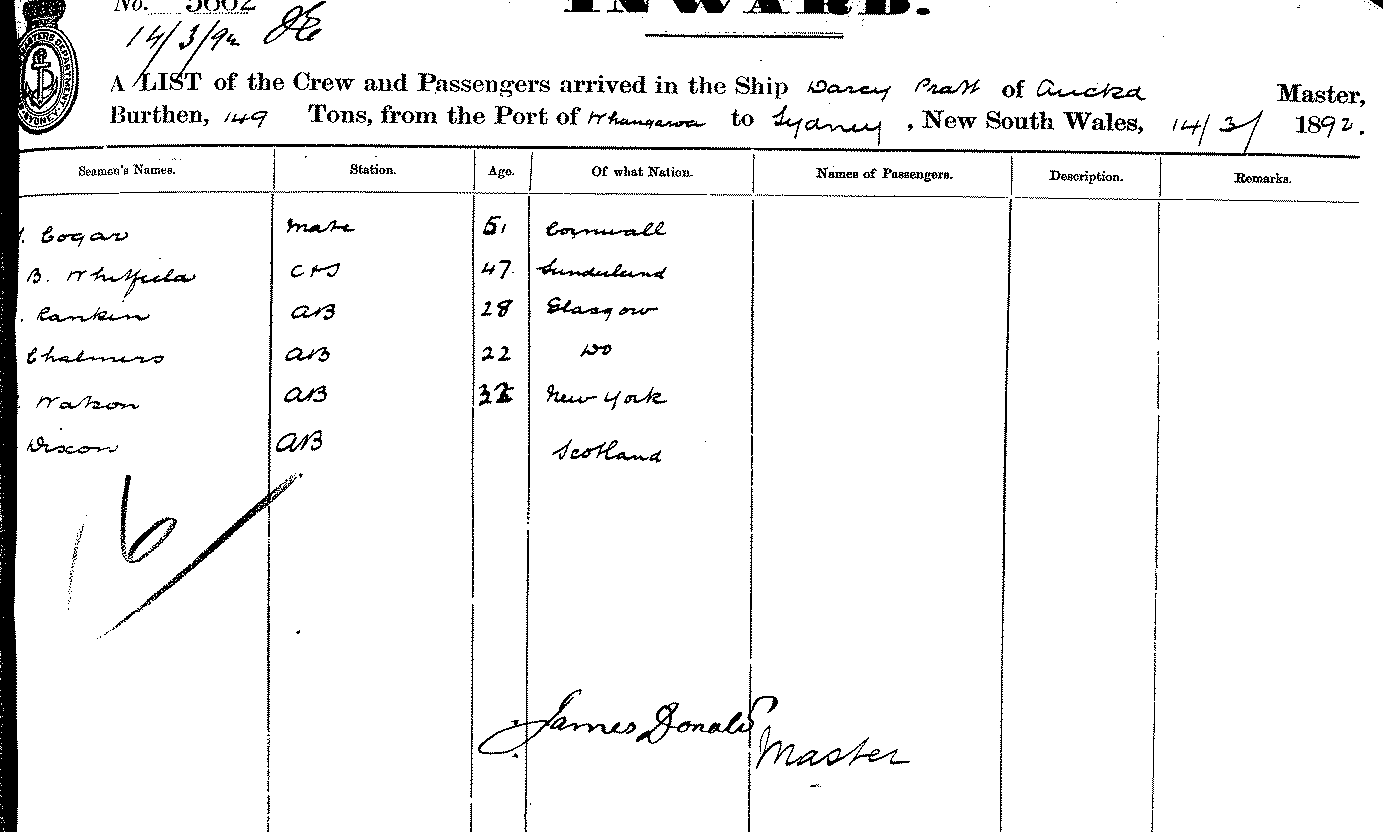 No. 5662
INWARD.
14/3/92
A LIST of the Crew and Passengers arrived in the Ship Darcy Pratt of Auckd Master,
Burthen, 149 Tons, from the Port of Whangaroa to Sydney, New South Wales, 14/3/ 1892.
Seamen's Names. Station. Age. Of what Nation. Names of Passengers. Description. Remarks.
Cogar Mate 51 Cornwall
B. Whitfield C & S 47 Sunderland
Rankin AB 28 Glasgow
Chalmers AB 22 Do
Watson AB New York
Dixon AB Scotland
6/
James Donald
Master